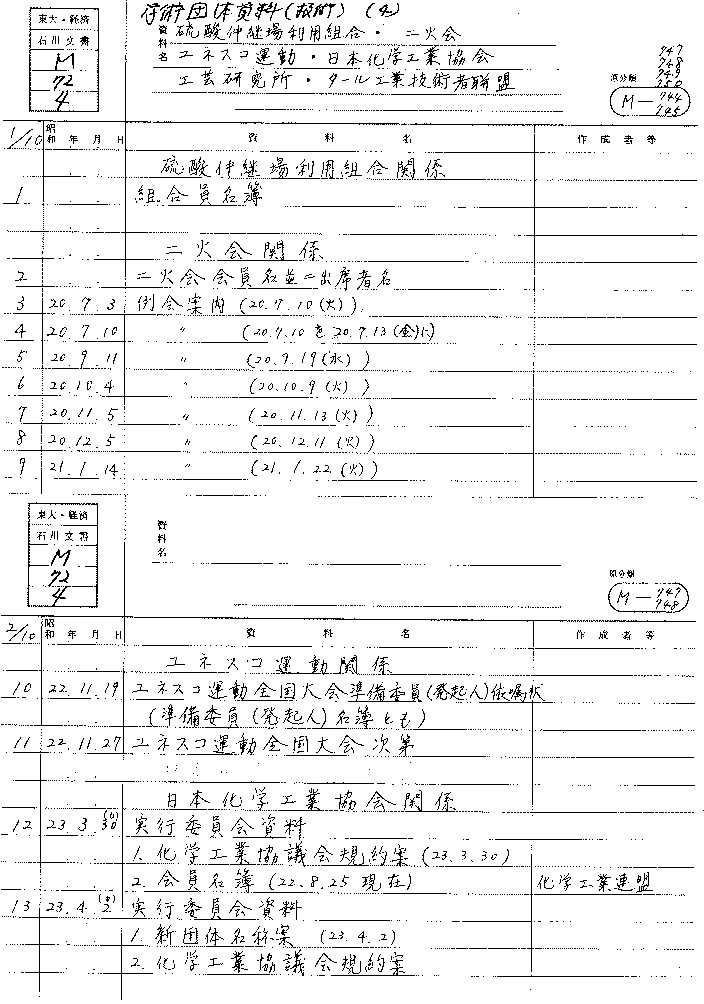 技術団体資料(技術) (4)
東大・経済
石川文書
M
72
4
資料名
硫酸仲継場利用組合・ 二火会
ユネスコ運動・日本化学工業協会
工芸研究所・タール工業技術者聯盟
747
748
749
750
原分類
M— 744
745
1/10 昭和 年 月 日 資 料 名 作成者等
硫酸仲継場利用組合関係
1 組合員名簿
二火会関係
2 二火会会員名並ニ出席者名
3 20.7.3 例会案内 (20.7.10(火))
4 20.7.10 〃 (20.7.10を20.7.13(金)に)
5 20.9.11 〃 (20.9.19(水))
6 20.10.4 〃 (20.10.9(火))
7 20.11.5 〃 (20.11.13(火))
8 20.12.5 〃 (20.12.11(火))
9 21.1.14 〃 (21.1.22(火))
東大・経済
石川文書
M
72
4
資料名
原分類
M— 747
748
2/10 昭和 年 月 日 資 料 名 作成者等
ユネスコ運動関係
10 22.11.19 ユネスコ運動全国大会準備委員(発起人)依嘱状
(準備委員(発起人)名簿とも)
11 22.11.27 ユネスコ運動全国大会次第
日本化学工業協会関係
12 23.3.30 実行委員会資料
1. 化学工業協議会規約案 (23.3.30)
2. 会員名簿 (22.8.25 現在) 化学工業連盟
13 23.4.2 実行委員会資料
1. 新団体名称案 (23.4.2)
2. 化学工業協議会規約案